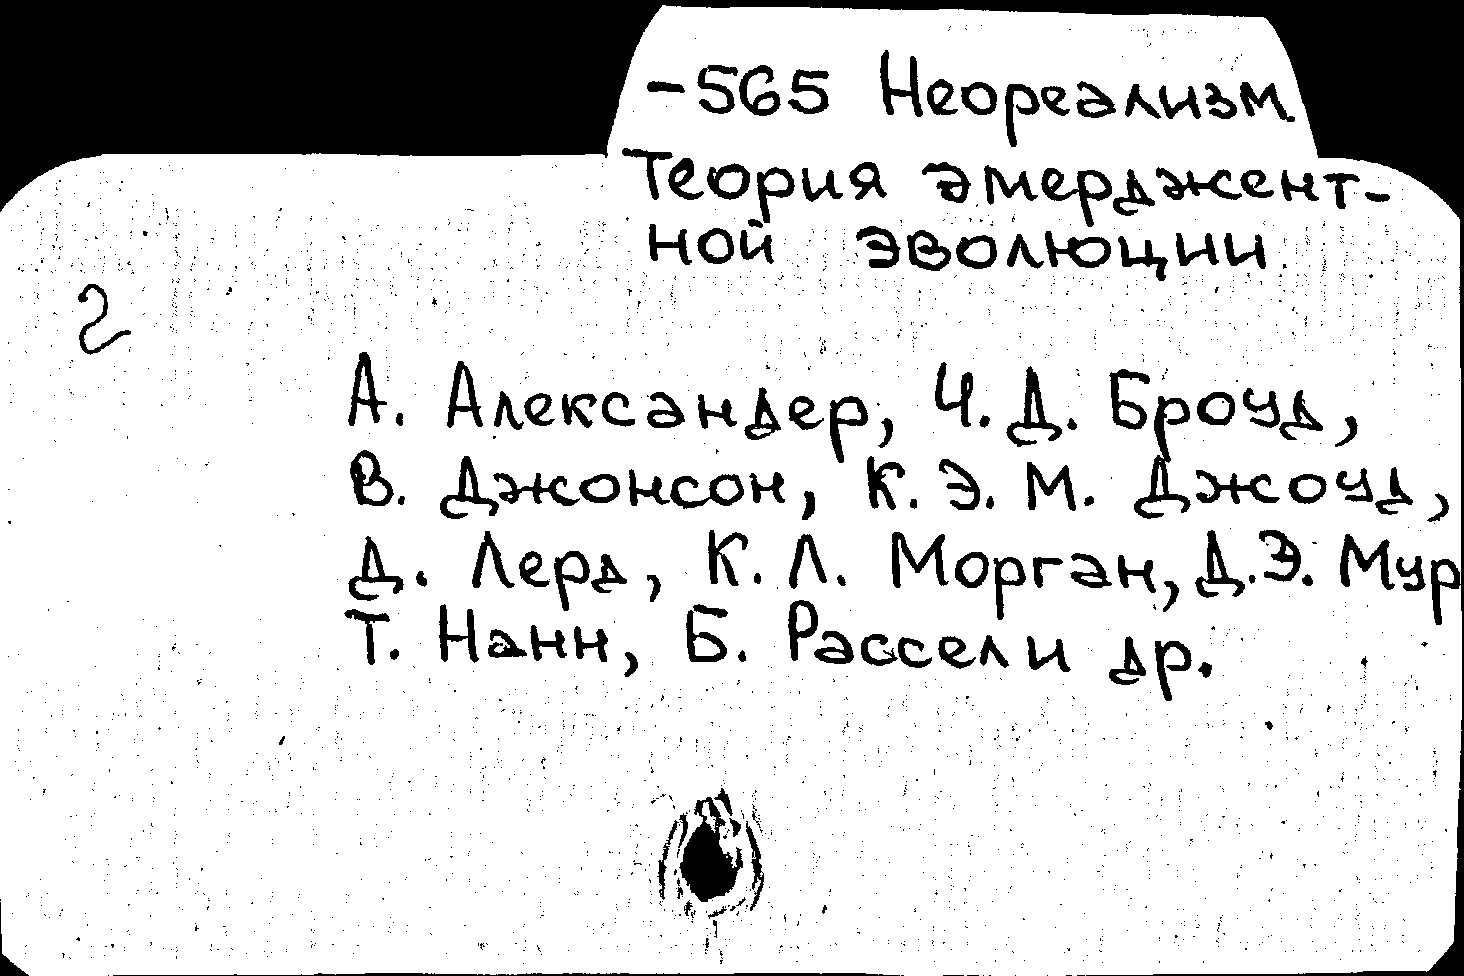 -565 Неореализм.
Теория эмерджент-
ной эволюции
2
А. Александер, Ч. Д. Броуд,
В. Джонсон, К. Э. М. Джоуд,
Д. Лерд, К. Л. Морган, Д. Э. Мур
Т. Нанн, Б. Рассел и др.